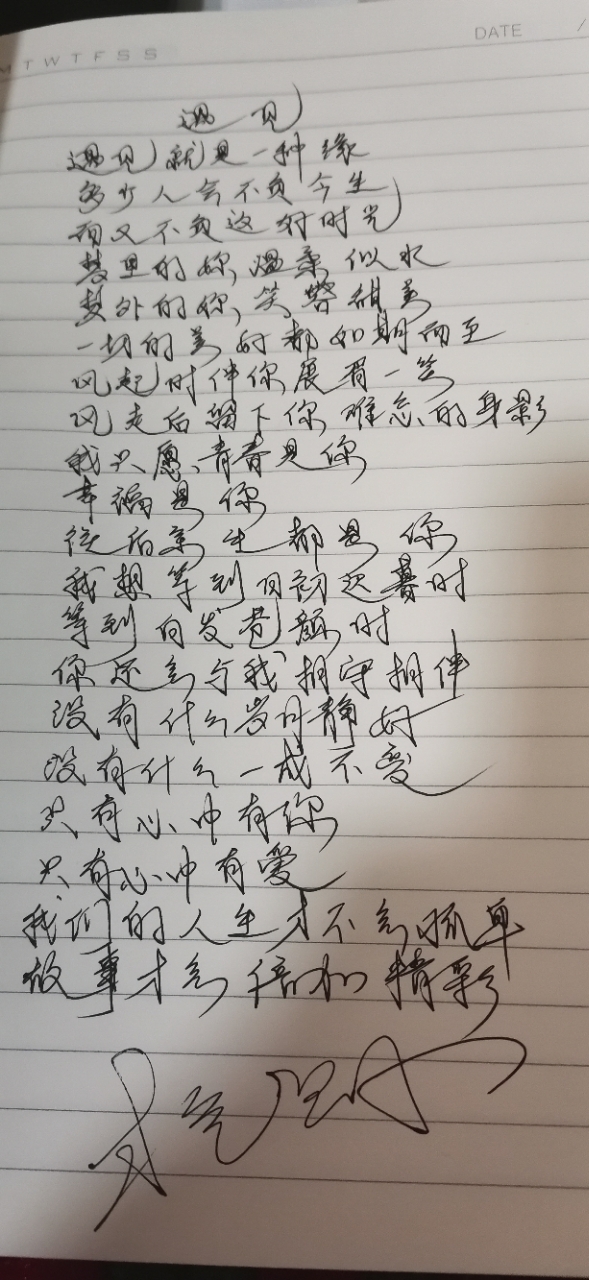 M T W T F S S
DATE /
遇见
遇见就是一种缘
多少人会不负今生
而又不负这好时光
梦里的你,温柔似水
梦外的你,笑容甜美
一切的美好都如期而至
风起时伴你展眉一笑
风走后留下你难忘的身影
我只愿、青春是你
幸福是你
往后余生都是你
我想等到日韵迟暮时
等到白发苍颜时
你还会与我相守相伴
没有什么岁月静好
没有什么一成不变
只有心中有你
只有心中有爱
我们的人生才不会孤单
故事才会倍加精彩